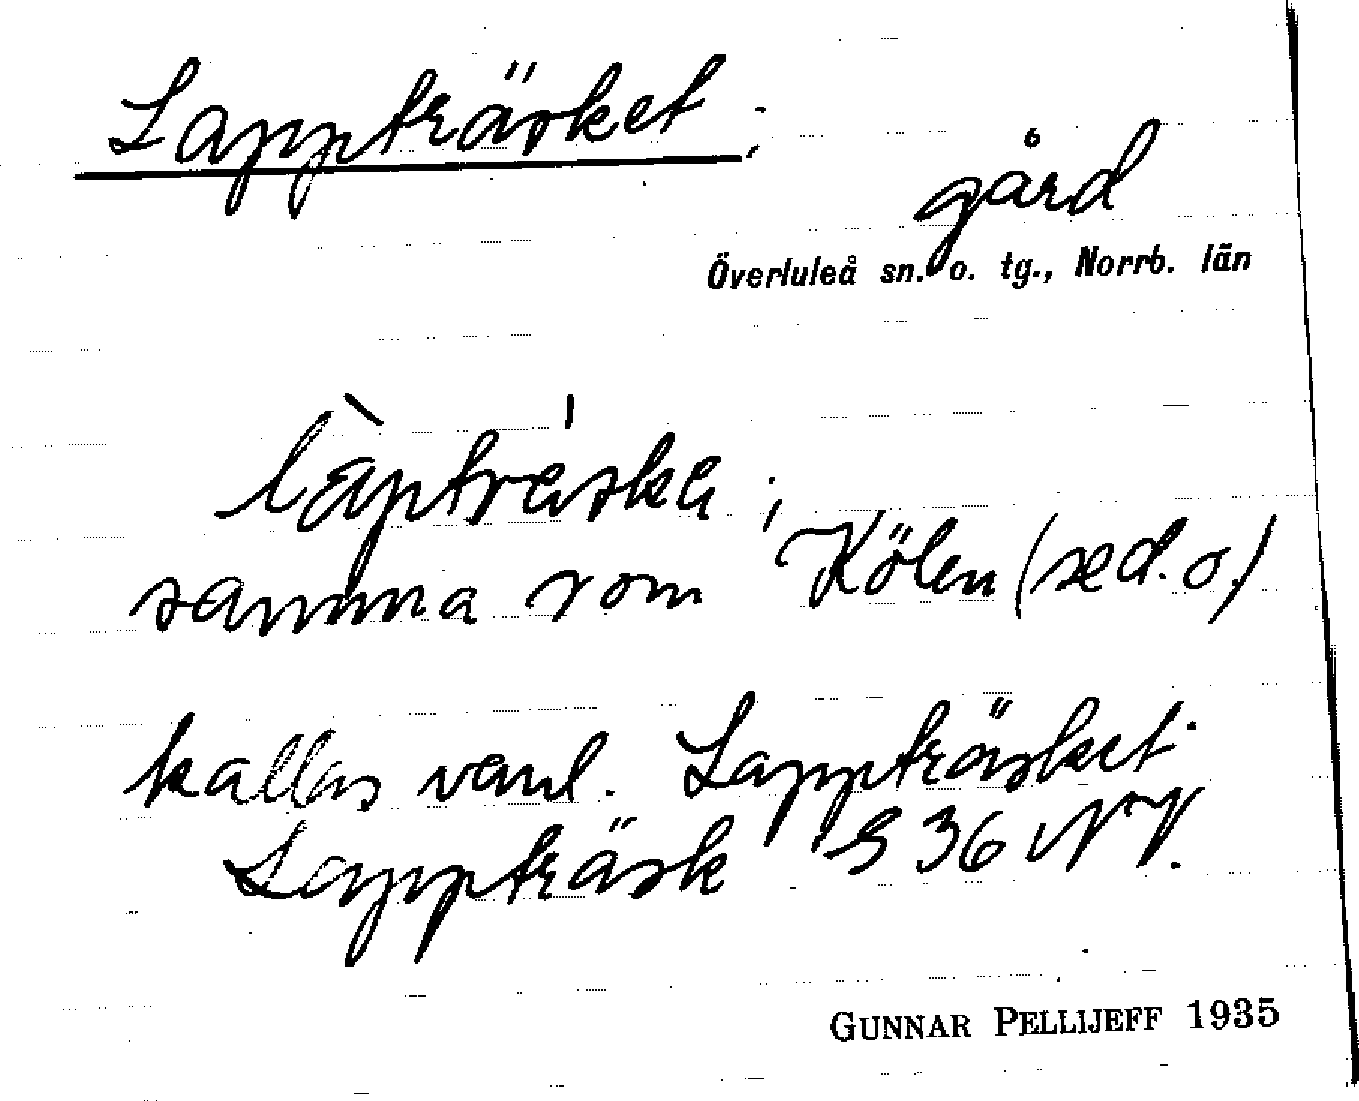 Lappträsket;
gård
Överluleå sn. o. tg., Norrb. län
samma som Kölen (se d. o.)
kallas vanl. Lappträsket
Lappträsk S 36 NV.
GUNNAR PELLIJEFF 1935